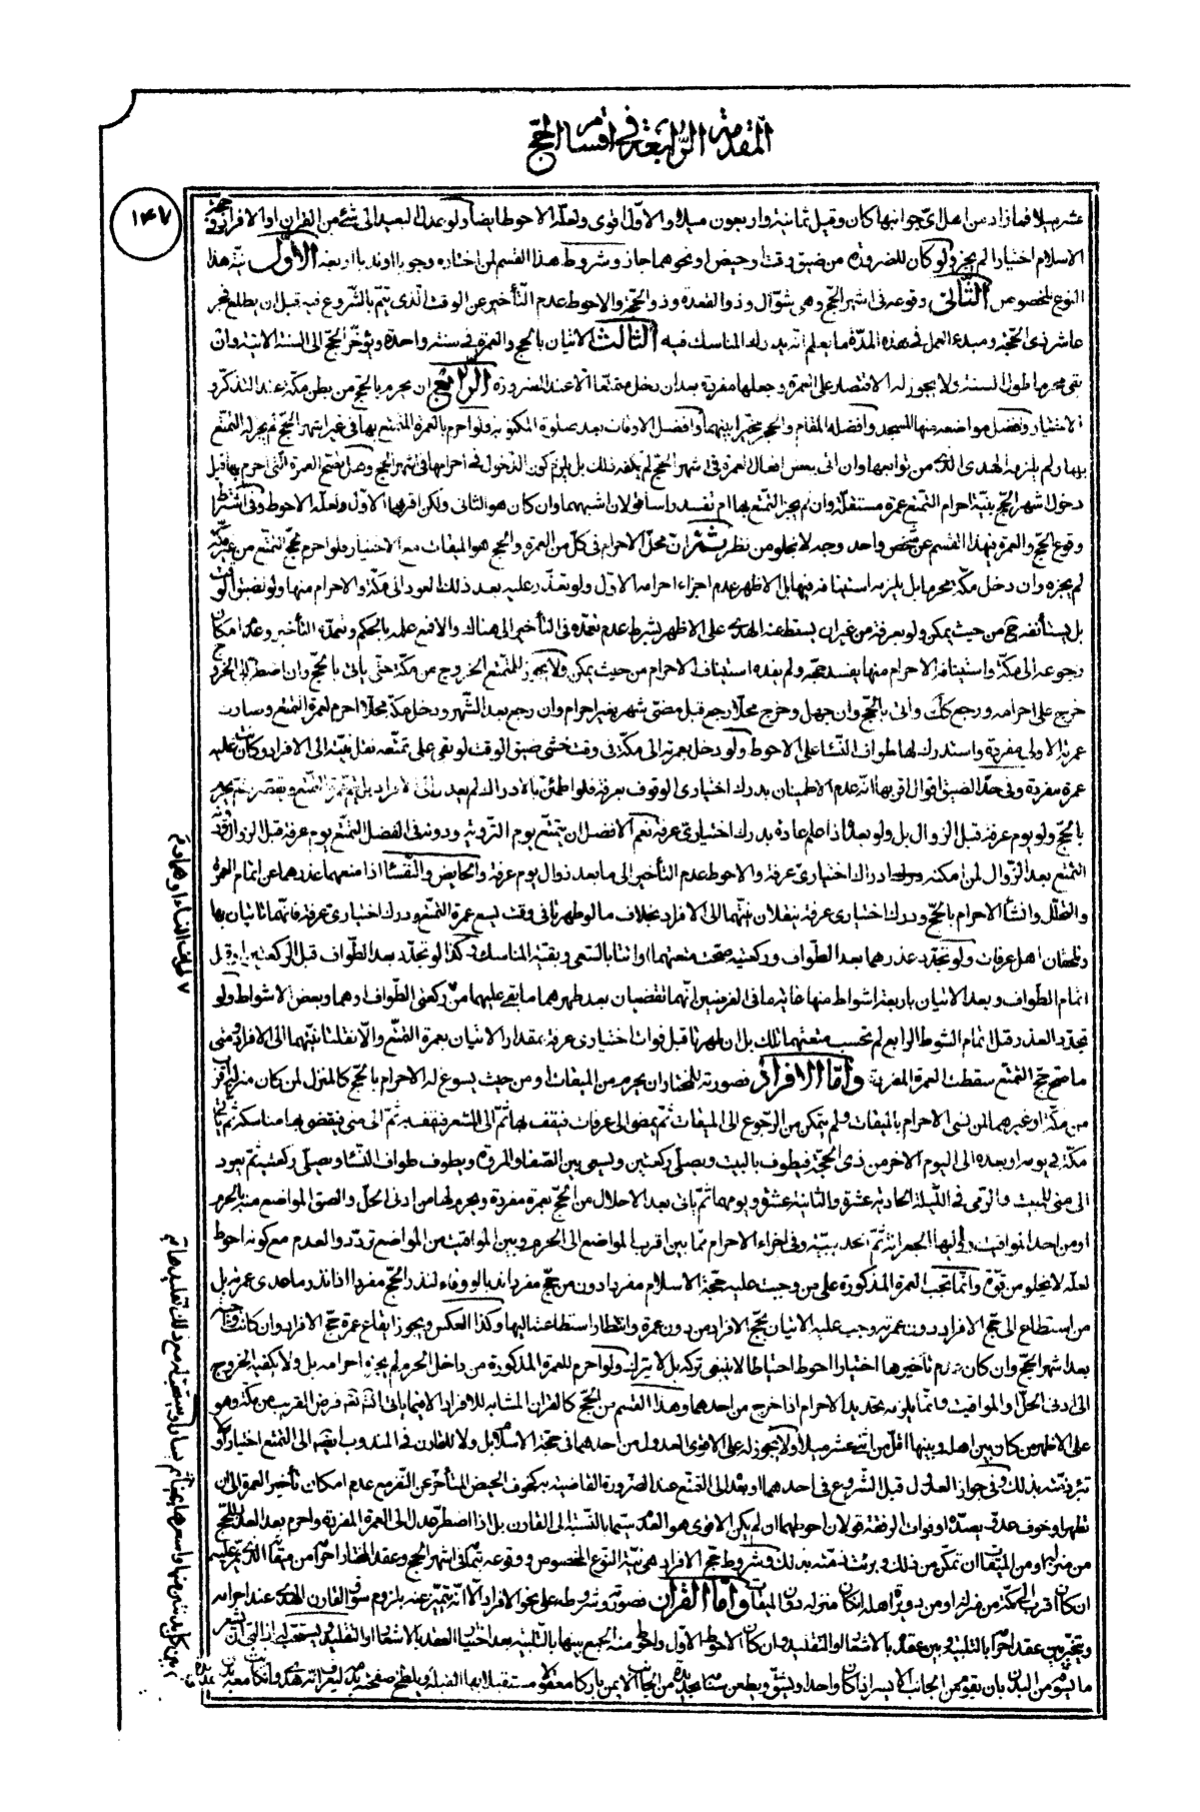 المقدمة الرابعة في اقسام الحج
١٤٧
عشر ميلا فما زاد من اهل اىّ جوانبها كان وقيل ثمانية واربعون ميلا والاوّل اقوى ولعله الاحوط ايضا ولو عدل البعيد الى شئ من القران او الافراد في حجّة
الاسلام اختيارا لم يجز ولو كان للضرورة من ضيق وقت او حيض او نحوهما جاز وشروط هذا القسم لمن اختاره وجوبا او ندبا اربعة الاوّل نيّة هذا
النوع المخصوص الثّانى وقوعه فى اشهر الحجّ وهى شوّال وذو القعدة وذو الحجّة والاحوط عدم التّأخير عن الوقت الّذى يتمّ بالشّروع فيه قبل ان يطلع فجر
عاشر ذى الحجّة ومبدء العمل فى هذه المدّة ما يعلم انّه يدرك المناسك فيه الثّالث الاتيان بالحج والعمرة فى سنة واحدة ولو أخّر الحجّ الى السنة الاتية وان
بقى محرما طول السنة ولا يجوز له الاقتصار على العمرة وجعلها مفردة بعد ان دخل متمتّعا الّا عند الضرورة الرّابع ان يحرم بالحجّ من بطن مكّة عند التذكر و
الاختيار وافضل مواضعه منها المسجد وافضله المقام والحجر مخيرا بينهما وافضل الاوقات بعد صلوة المكتوبة فلو احرم بالعمرة المتمتع بها فى غير اشهر الحجّ لم يجز له التمتع
بها ولم يلزمه الهدى الذى من توابعها وان اتى ببعض افعال العمرة فى اشهر الحجّ لم يكفه ذلك بل يلزم كون الدّخول فى احرامها فى اشهر الحج وهل تصح العمرة التى احرم بها قبل
دخول اشهر الحجّ بنيّة احرام التمتع عمرة مستقلّة وان لم يجز التمتع بها ام تفسد راسا قولان اشبههما وان كان هو الثانى ولكن اقربهما الاول ولعله الاحوط وفى اشتراط
وقوع الحجّ والعمرة بهذا القسم عن شخص واحد وجه لا يخلو من نظر ثمّ ان محلّ الاحرام فى كلّ من العمرة والحج هو الميقات مع الاختيار فلو احرم بحجّ التمتع من غير مكّة
لم يجزه وان دخل مكّة محرما بل يلزمه استينافه فيها بل الاظهر عدم اجزاء احرامه الاول ولو تعذّر عليه بعد ذلك العود الى مكّة والاحرام منها ولو لضيق الوقت
بل يستأنفه ح من حيث يمكن ولو بعرفة من غير ان يسقط عنه الهدى على الاظهر بشرط عدم تعمّده فى التأخير الى هناك والا فمع علمه بالحكم وتعمّده التأخير وعدم امكان
رجوعه الى مكّة واستينافه الاحرام منها يفسد حجّه ولم يفده استيناف الاحرام من حيث يمكن ولا يجوز للمتمتع الخروج من مكّة حتّى يأتى بالحجّ وان اضطر الى الخروج
خرج على احرامه ورجع كك واتى بالحجّ وان جهل وخرج محلّا رجع قبل مضىّ شهر بغير احرام وان رجع بعد الشّهر ودخل مكّة محلّا احرم لعمرة التمتع وصارت
عمرته الاولى مفردة واستدرك لها طواف النّساء على الاحوط ولو دخل بعمرته الى مكّة فى وقت خشى ضيق الوقت لو بقى على تمتّعه نقل نيّته الى الافراد وكانت عليه
عمرة مفردة وفى حدّ الضيق اقوال اقربها انّه عدم الاطمينان بدرك اختيارى الوقوف بعرفة فلو اطمئنّ بالادراك لم يعد الى الافراد بل يتم عمرة التّمتع ويقصر ثم يحرم
بالحجّ ولو يوم عرفة قبل الزوال بل ولو بعده اذا علم عادة بدرك اختيارى عرفة نعم الافضل ان يتمتّع يوم التروية ودونه فى الفضل التمتّع يوم عرفة قبل الزوال ودونه
التمتع بعد الزّوال لمن امكنه ادراك اختيارىّ عرفة والاحوط عدم التأخير الى ما بعد زوال يوم عرفة والحايض والنّفساء اذا منعهما عذرهما عن اتمام العمرة
والتحلّل وانشاء الاحرام بالحجّ ودرك اختيارى عرفة ينقلان نيّتهما الى الافراد بخلاف ما لو طهرتا فى وقت يسع عمرة التمتّع ودرك اختيارى عرفة فانّهما تاتيان بها
وتلحقان اهل عرفات ولو تجدّد عذرهما بعد الطّواف وركعتيه صحّت متعتهما واتتا بالسّعى وبقيّة المناسك وكذا لو تجدّد بعد الطّواف قبل الرّكعتين او قبل
اتمام الطّواف وبعد الاتيان باربعة اشواط منها غاية ما فى الفرضين انّهما تقضيان بعد طهرهما ما بقى عليهما من ركعتى الطّواف او هما وبعض الاشواط ولو
تجدّد العذر قبل اتمام الشوط الرابع لم تحسب متعتهما تلك بل ان طهرتا قبل فوات اختيارى عرفة بمقدار الاتيان بعمرة التمتّع والّا نقلتا نيّتهما الى الافراد ومتى
ما صحّ حجّ التمتّع سقطت العمرة المفردة وامّا الافراد فصورته للمختار ان يحرم من الميقات او من حيث يسوغ له الاحرام بالحجّ كالمنزل لمن كان منزله اقرب
من مكّة او غيرهما لمن نسى الاحرام بالميقات ولم يتمكن من الرّجوع الى الميقات ثمّ يمضى الى عرفات فيقف بها ثمّ الى المشعر فيقف به ثمّ الى منى فيقضى بها مناسكه ثم يأتى
مكّة فى يومه او بعده الى اليوم الاخر من ذى الحجّة فيطوف بالبيت ويصلّى ركعتين ويسعى بين الصّفا والمروة ويطوف طواف النّساء ويصلّى ركعتيه ثمّ يعود
الى منى للمبيت والرّمى فى اللّيلة الحادية عشرة والثانية عشرة ويومهما ثمّ يأتى بعد الاحلال من الحجّ بعمرة مفردة ويحرم لها من ادنى الحلّ والصق المواضع منه بالحرم
او من احد المواقيت واولى بها الجعرانة ثمّ الحديبيّة وفى اجزاء الاحرام ممّا بين اقرب المواضع الى الحرم وبين المواقيت من المواضع تردّد والعدم مع كونه احوط
لعله لا يخلو من قوّة وانّما تجب العمرة المذكورة على من وجبت عليه حجّة الاسلام مفردا دون من حجّ مفردا ندبا او وفاء لنذر الحجّ مفردا اذا نذر ما عدى عمرته بل
من استطاع الى حجّ الافراد دون عمرته وجب عليه الاتيان بحجّ الافراد من دون عمرة وانتظار استطاعته اليها وكذا العكس ويجوز ايقاع عمرة حجّ الافراد وان كانت واجبة
بعد اشهر الحجّ وان كان عدم تأخيرها اختيارا احوط احتياطا لا ينبغى تركه بل لا يترك ولو احرم للعمرة المذكورة من داخل الحرم لم يجزه احرامه بل ولا يكفيه الخروج
الى ادنى الحلّ او المواقيت وانما يلزمه تجديد الاحرام اذا خرج من احدهما وهذا القسم من الحجّ كالقران المشابه للافراد الا فيما ياتى انش‍ تع‍ فرض القريب من مكّة وهو
على الاظهر من كان بين اهله وبينها اقلّ من اثنى عشر ميلا ولا يجوز له على الاقوى العدول من احدهما فى حجّة الاسلام بل ولا للقارن فى المندوب ايضا الى التمتع اختيارا ولو
تبرء ذمّته بذلك وفى جواز العدول قبل الشّروع فى احدهما او بعده الى التمتع عند الضرورة القاضية به كخوف الحيض المتأخّر عن النّفر مع عدم امكان تأخير العمرة الى ان
تطهر او خوف عدوّ يصدّه او فوات الرفقة قولان احوطهما ان لم يكن الاقوى هو العدم سيّما بالنّسبة الى القارن بل اذا اضطرّ عدل الى العمرة المفردة واحرم بعد العدول للحجّ
من منزله او من الميقات ان تمكّن من ذلك وبرئت ذمّته بذلك وشروط حجّ الافراد هى نيّة النوع المخصوص ووقوعه بتمامه فى اشهر الحج وعقد المختار احرامه من ميقاته الّذى يمرّ عليه
ان كان اقرب الى مكّة من منزله او من دويرة اهله ان كان منزله دون الميقات وامّا القران فصورته وشروطه على نحو الافراد الّا انّه يتميّز عنه بلزوم سوق القارن الهدى عند احرامه
ويتخيّر بين عقد احرامه بالتلبية وبين عقده بالاشعار او التقليد وان كان الاحوط الاول واحوط منه الجمع بينها بالتّلبية بعد اختيار العقد بالاشعار او التقليد ويستحب له اذا اراد ان يشعر
ما يسوقه من البدن بان يقوم من الجانب الايسر اذا كان واحدا ويشقّ ويطعن سنامه بحديدة من الجانب الايمن باركا معقولا مستقبلا بها القبلة ويلطخ صفحته بدمه ليعرف انّه هدى وان كان معه بدن
٧ طواف النساء او هما معا